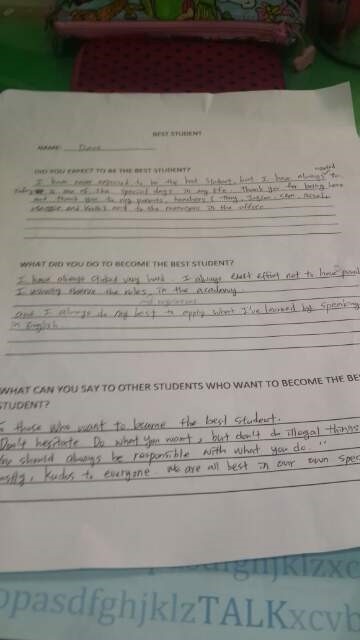 BEST STUDENT
NAME:
DID YOU EXPECT TO BE THE BEST STUDENT?
wanted
I have never expected to be the best student, but I have always to.
Today is one of the special days in my life. Thank you for being here
and thank you to my parents, teachers (
and to the managers in the office
WHAT DID YOU DO TO BECOME THE BEST STUDENT?
I have always studied very hard. I always exert effort not to have
I usually observe the rules in the academy
and regulations
and I always do my best to apply what I've learned by speaking
in English.
WHAT CAN YOU SAY TO OTHER STUDENTS WHO WANT TO BECOME THE BES
STUDENT?
those who want to become the best student.
Don't hesitate Do what you want, but don't do illegal things
You should always be responsible with what you do "
Kudos to everyone. We are all best in our own spec
dfghjklzxc
opasdfghjklzTALKxcvb